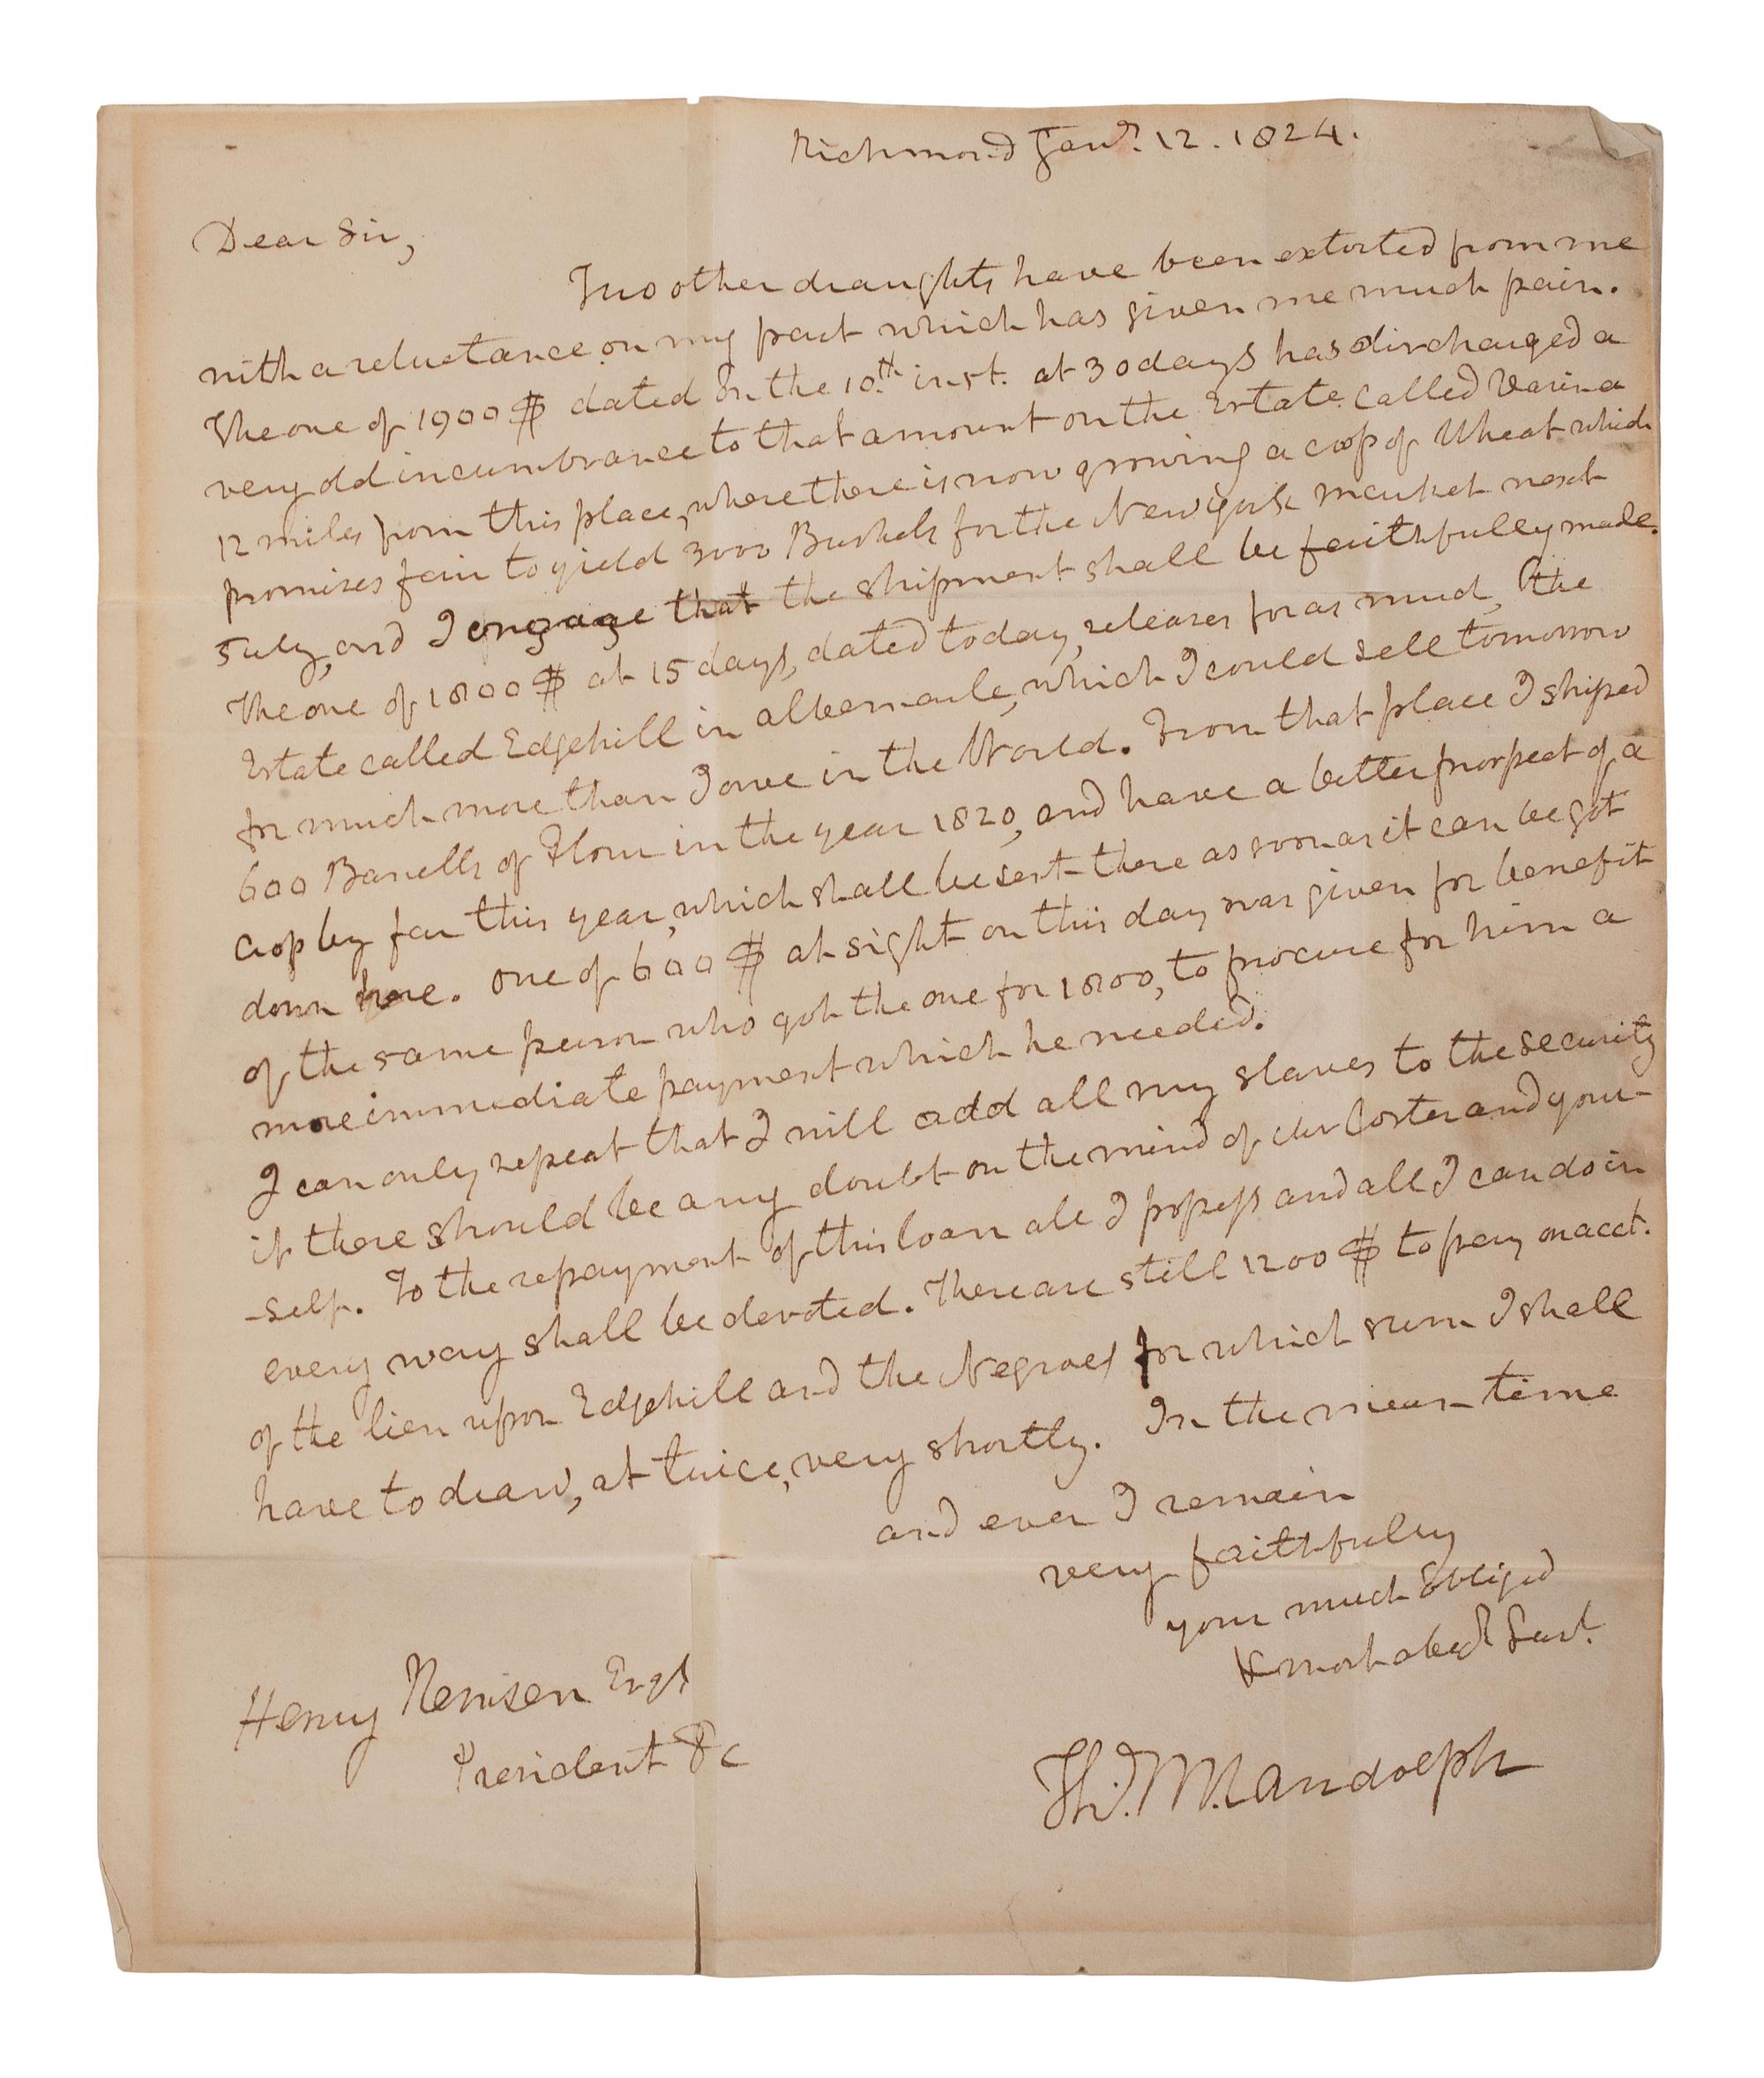 Richmond Janr. 12. 1824.
Dear Sir,
Two other draughts have been extorted from me
with a reluctance on my part which has given me much pain.
The one of 1900$ dated on the 10th. inst. at 30 days has discharged a
very old incumbrance to that amount on the Estate called Varina
12 miles from this place, where there is now growing a crop of Wheat which
promises fair to yield 3000 Bushels for the New york market next
July, and I engage that the shipment shall be faithfully made.
The one of 1800$ at 15 days, dated today, releases for as much, the
Estate called Edgehill in albemarle, which I could sell tomorrow
for much more than I owe in the World. From that place I shiped
600 Barells of Flour in the year 1820, and have a better prospect of a
crop by far this year, which shall be sent there as soon as it can be got
down here. One of 600$ at sight on this day was given for benefit
of the same person who got the one for 1800, to procure for him a
more immediate payment which he needed.
I can only repeat that I will add all my slaves to the security
if there should be any doubt on the mind of Mr Coster and your-
-self. To the repayment of this loan all I possess and all I can do in
every way shall be devoted. There are still 1200$ to pay on acct.
of the lien upon Edgehill and the Negroes for which sum I shall
have to draw, at twice, very shortly. In the mean time
and ever I remain
very faithfully
your much Obliged
& most obedt Servt.
Henry Remsen Esqr
President &c
Th: M. Randolph